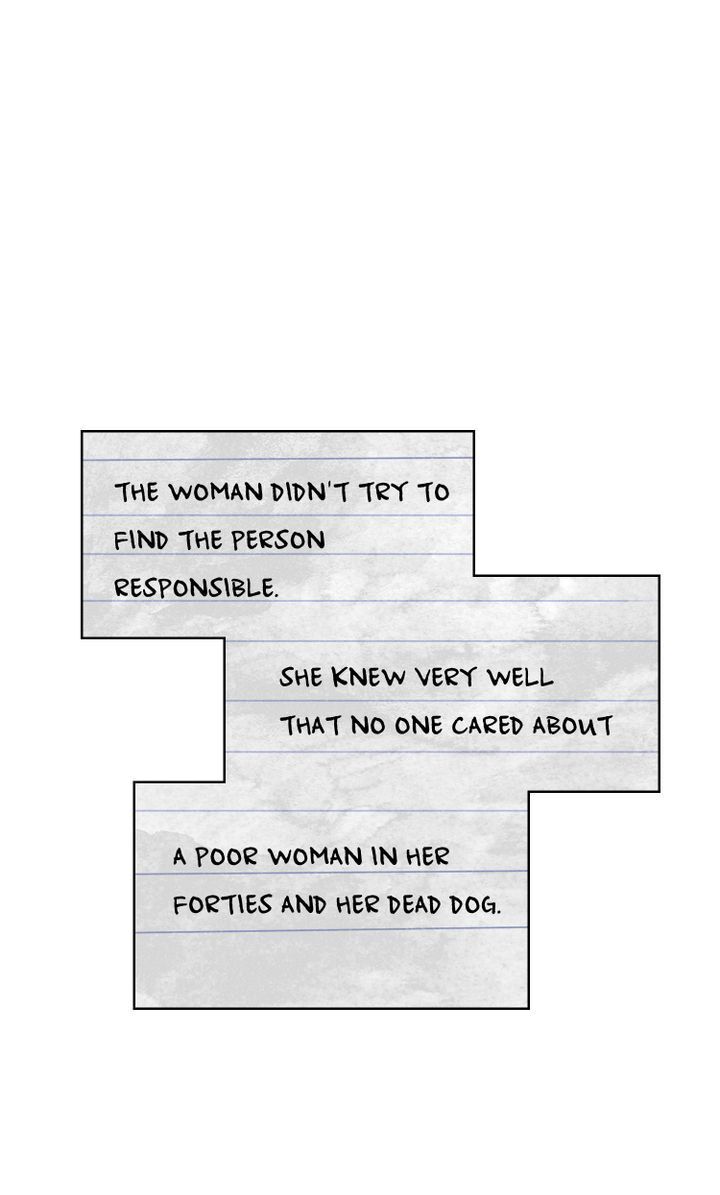 THE WOMAN DIDN'T TRY TO
FIND THE PERSON
RESPONSIBLE.
SHE KNEW VERY WELL
THAT NO ONE CARED ABOUT
A POOR WOMAN IN HER
FORTIES AND HER DEAD DOG.